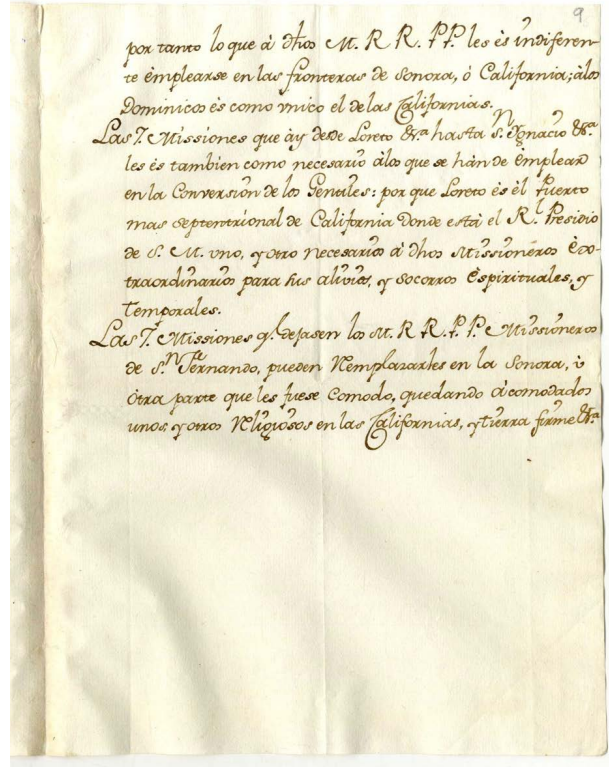 9
por tanto lo que â dhos M. R R. P.P. les és indiferen-
te émplearse en las fronteras de Sonora, ó California; álos
Dominicos és como vnico el de las Californias.
Las 7. Missiones que áy desde Loreto &ra hasta Sn Ygnacio &ra
les és tambien como necesario álos que se hán de émplear
en la Conversión de los Gentiles: por que Loreto és él Puerto
mas septentrional de California donde está él Rl Presidio
de S. M. vno, y otro necesarios â dhos Missionéros Éx-
traordinarios para sus alivios, y socorros Éspirituales, y
temporales.
Las 7. Missiones q.e dejasen los M. R R. P P. Missióneros
de Sn Fernando, pueden Remplazarles en la Sonora, ú
ótra parte que les fuese Comodo, quedando ácomodados
unos y otros Religiosos en las Californias, y tierra firme &ra